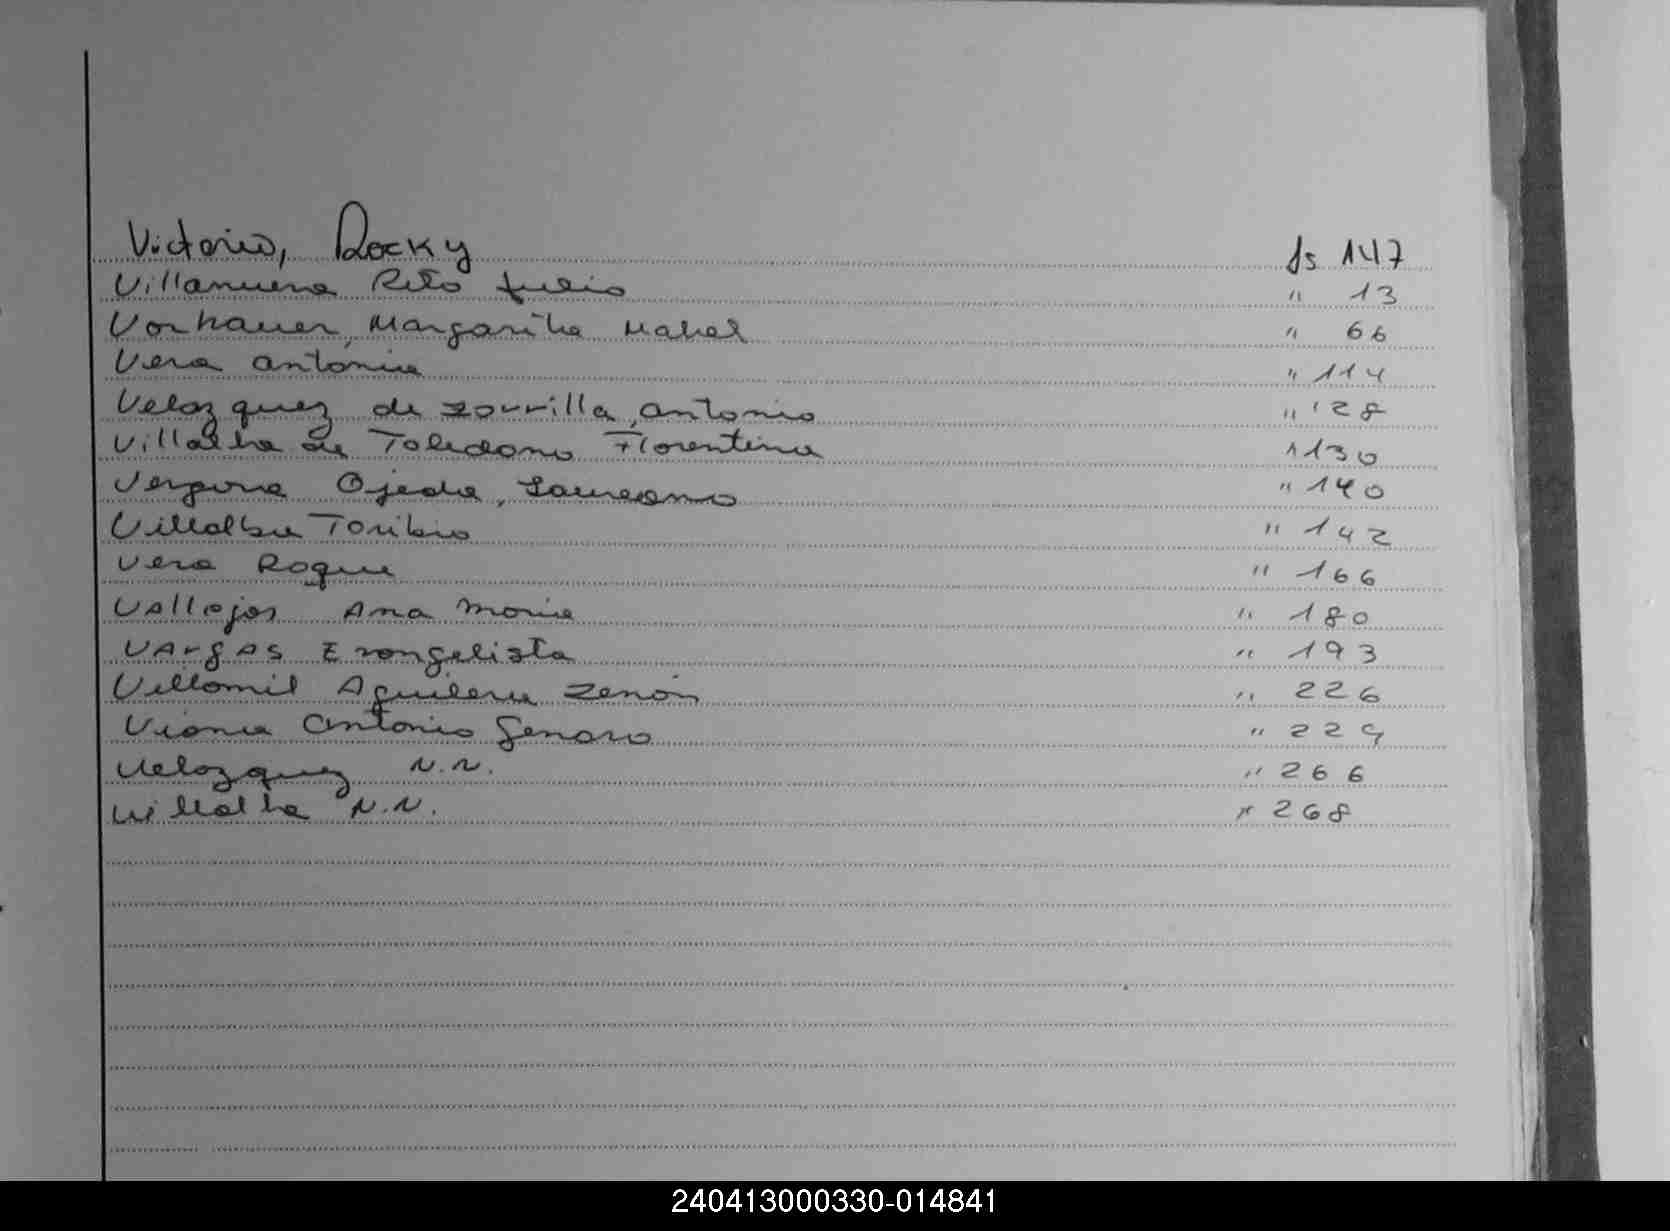 Victorio, Rocky fs 147
Villanueva Rito Julio " 13
Vorhauer, Margarita Mabel " 66
Vera Antonia " 114
Velazquez de Zorrilla, Antonia " 128
Villalba de Toledano Florentina " 130
Vergara Ojeda, Laureano " 140
Villalba Toribio " 142
Vera Roque " 166
Vallejos Ana Maria " 180
Vargas Evangelista " 193
Villamil Aguilera Zenón " 226
Viana Antonio Genaro " 229
Velazquez N.N. " 266
Villalba N.N. " 268
240413000330-014841